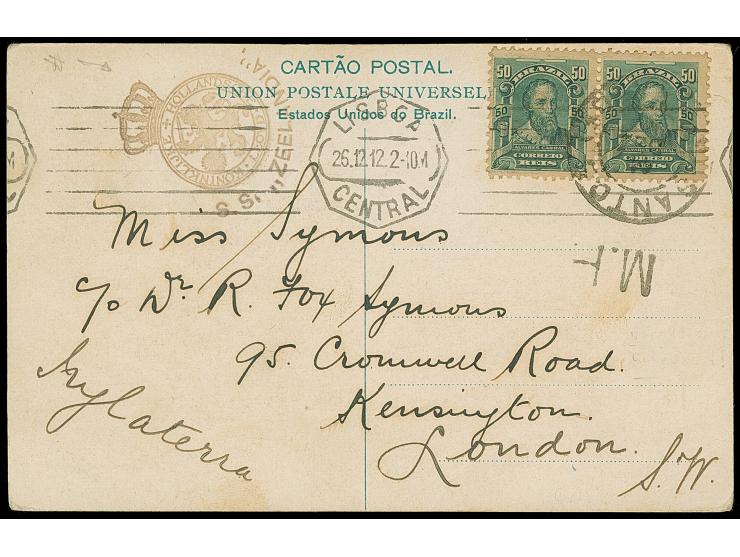 CARTÃO POSTAL.
UNION POSTALE UNIVERSELLE
Estados Unidos do Brazil.
HOLLANDSCHE
KONINKLIJKE
S.S. „ZEELANDIA"
LISBOA
26.12.12. 2-10M
CENTRAL
50 BRAZIL 50
50 50
ALVARES CABRAL
CORREIO
REIS
50 BRAZIL 50
50 50
ALVARES CABRAL
CORREIO
REIS
SANTOS
M.F
Miss Symons
c/o Dr. R. Fox Symons
95. Cromwell Road.
Kensington.
London. S.W.
Inglaterra